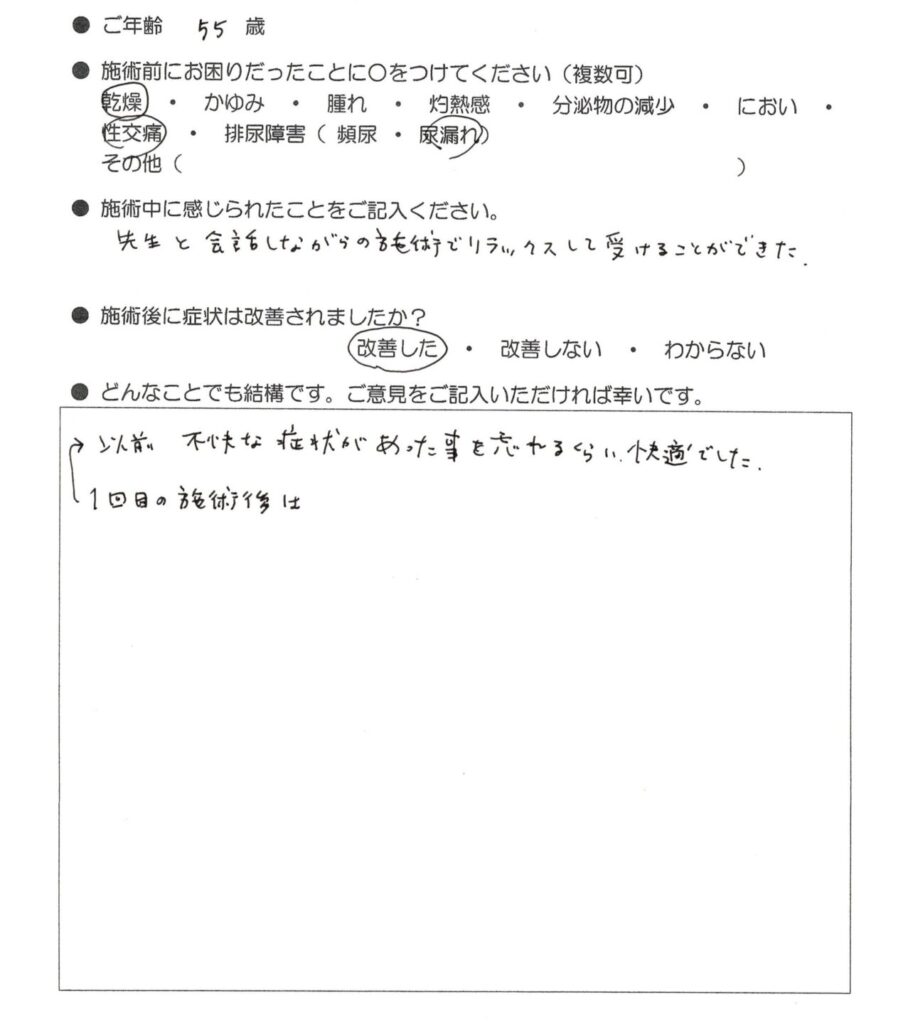 ● ご年齢 55 歳
● 施術前にお困りだったことに〇をつけてください（複数可）
乾燥 ・ かゆみ ・ 腫れ ・ 灼熱感 ・ 分泌物の減少 ・ におい ・
性交痛 ・ 排尿障害（ 頻尿 ・ 尿漏れ）
その他（ ）
● 施術中に感じられたことをご記入ください。
先生と会話しながらの施術でリラックスして受けることができた.
● 施術後に症状は改善されましたか？
改善した ・ 改善しない ・ わからない
● どんなことでも結構です。ご意見をご記入いただければ幸いです。
以前 不快な症状があった事を忘れるくらい、快適でした.
1回目の施術後は